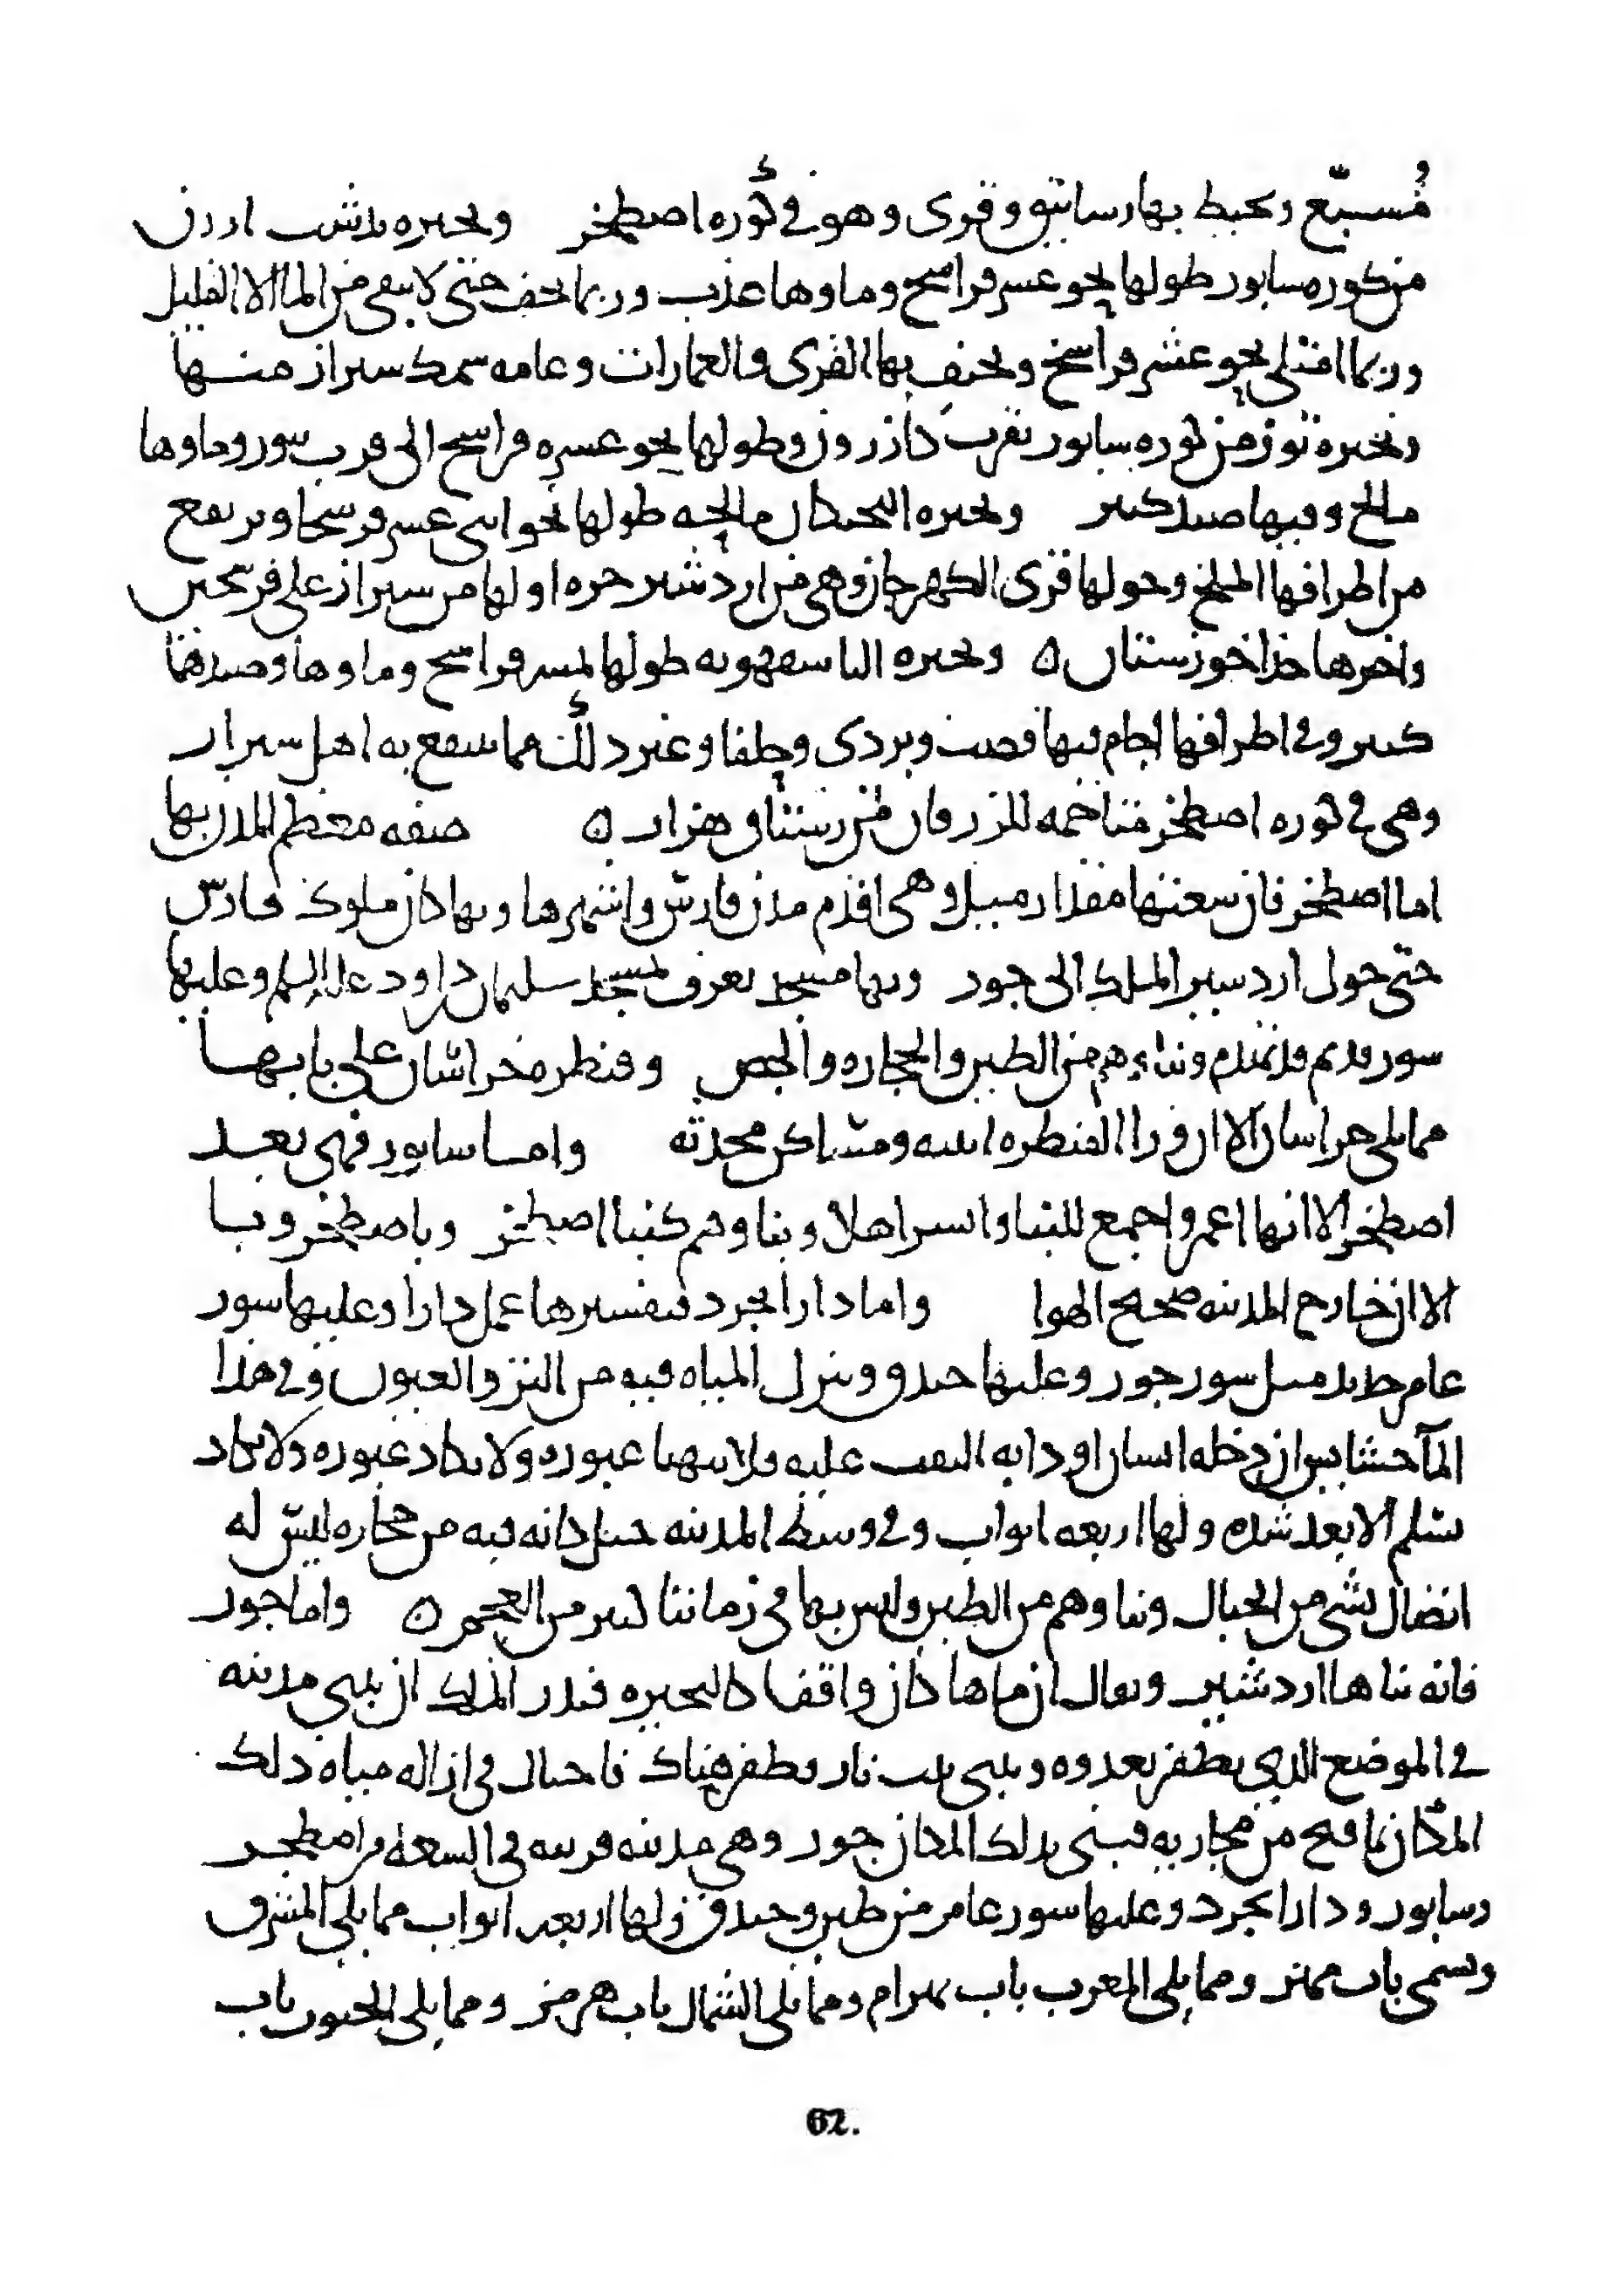 مُسبّع ويحيط بها رساتيق وقرى وهو فى كُوره اصطخر وبحيره بدشت اررن
من كوره سابور طولها نحو عشر فراسخ وماوها عذب وربما تجف حتى لا يبقى من الما الا القليل
وربما امتلى نحو عشر فراسخ وتحتف بها القرى والعمارات وعامه سمك سيراز منها
وبحيره توز من كوره سابور بقرب كازرون وطولها نحو عسره فراسخ الى قرب مور وماوها
مالح وفيها صيد كثير وبحيره البحتكان مالحه طولها نحو اثنى عسر فرسخا ويرتفع
من اطرافها الملح وحولها قرى الكهرجان وهى من اردشير خره اولها من سيراز على فرسخين
واخرها حد اخوزستان ٥ وبحيره الباسفهويه طولها ثمنيه فراسخ وماوها وصيدها
كثير وفى اطرافها اجام فيها قصب وبردى وحلفا وغير ذلك مما ينتفع به اهل سيراز
وهى فى كوره اصطخر متاخمه للزرقان من رستاق هزار ٥ صفه معظم المدن بها
اما اصطخر فان سعتها مقدار ميل وهى اقدم مدن فارس واشهرها وبها كان ملوك فارس
حتى حول اردسير الملك الى جور وبها مسجد يعرف بمسجد سليمان بن داود عليه السلم وعليها
سور قديم قد تهدم وبناءهم من الطين والحجاره والجص وقنطره خراسان على بابها
مما يلى خراسان الا ان ورا القنطره ابنيه ومساكن محدثه واما سابور فهى بعد
اصطخر الا انها اعمر واجمع للبنا وايسر اهلا وبناوهم كبنا اصطخر وباصطخر وبا
الا ان خارج المدينه صحيح الهوا واما دارابجرد فتفسيرها عمل دارا وعليها سور
عامر جديد مثل سور جور وعليها خندق وينزل المياه فيه من النز والعيون وفى هذا
المآ حشايش ان دخله انسان او دابه التفت عليه فلا يتهيا عبوره ولا يكاد عبوره ولا يكاد
يسلم الا بعد شده ولها اربعه ابواب وفى وسط المدينه جبل كانه قبه من حجاره ليس له
اتصال بشى من الجبال وبناوهم من الطين وليس بها فى زماننا كثير من العجم ٥ واما جور
فانه بناها اردشير ويقال ان ماها كان واقفا كالبحيره فنذر الملك ان يبنى مدينه
فى الموضع الذى يظفر بعدوه ويبنى بيت نار فظفر هناك فاحتال فى ازاله مياه ذلك
المكان بما فتح من مجاريه فبنى بذلك المكان جور وهى مدينه قريبه فى السعه من اصطخر
وسابور ودارابجرد وعليها سور عامر من طين وخندق ولها اربعه ابواب مما يلى المشرق
ويسمى باب مهر ومما يلى المغرب باب بهرام ومما يلى الشمال باب هرمز ومما يلى الجنوب باب
62.